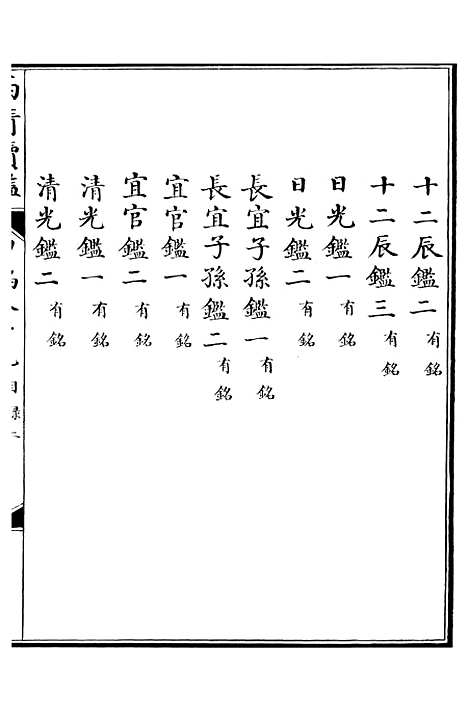 十二辰鑑二有銘
十二辰鑑三有銘
日光鑑一有銘
日光鑑二有銘
長宜子孫鑑一有銘
長宜子孫鑑二有銘
宜官鑑一有銘
宜官鑑二有銘
清光鑑一有銘
清光鑑二有銘